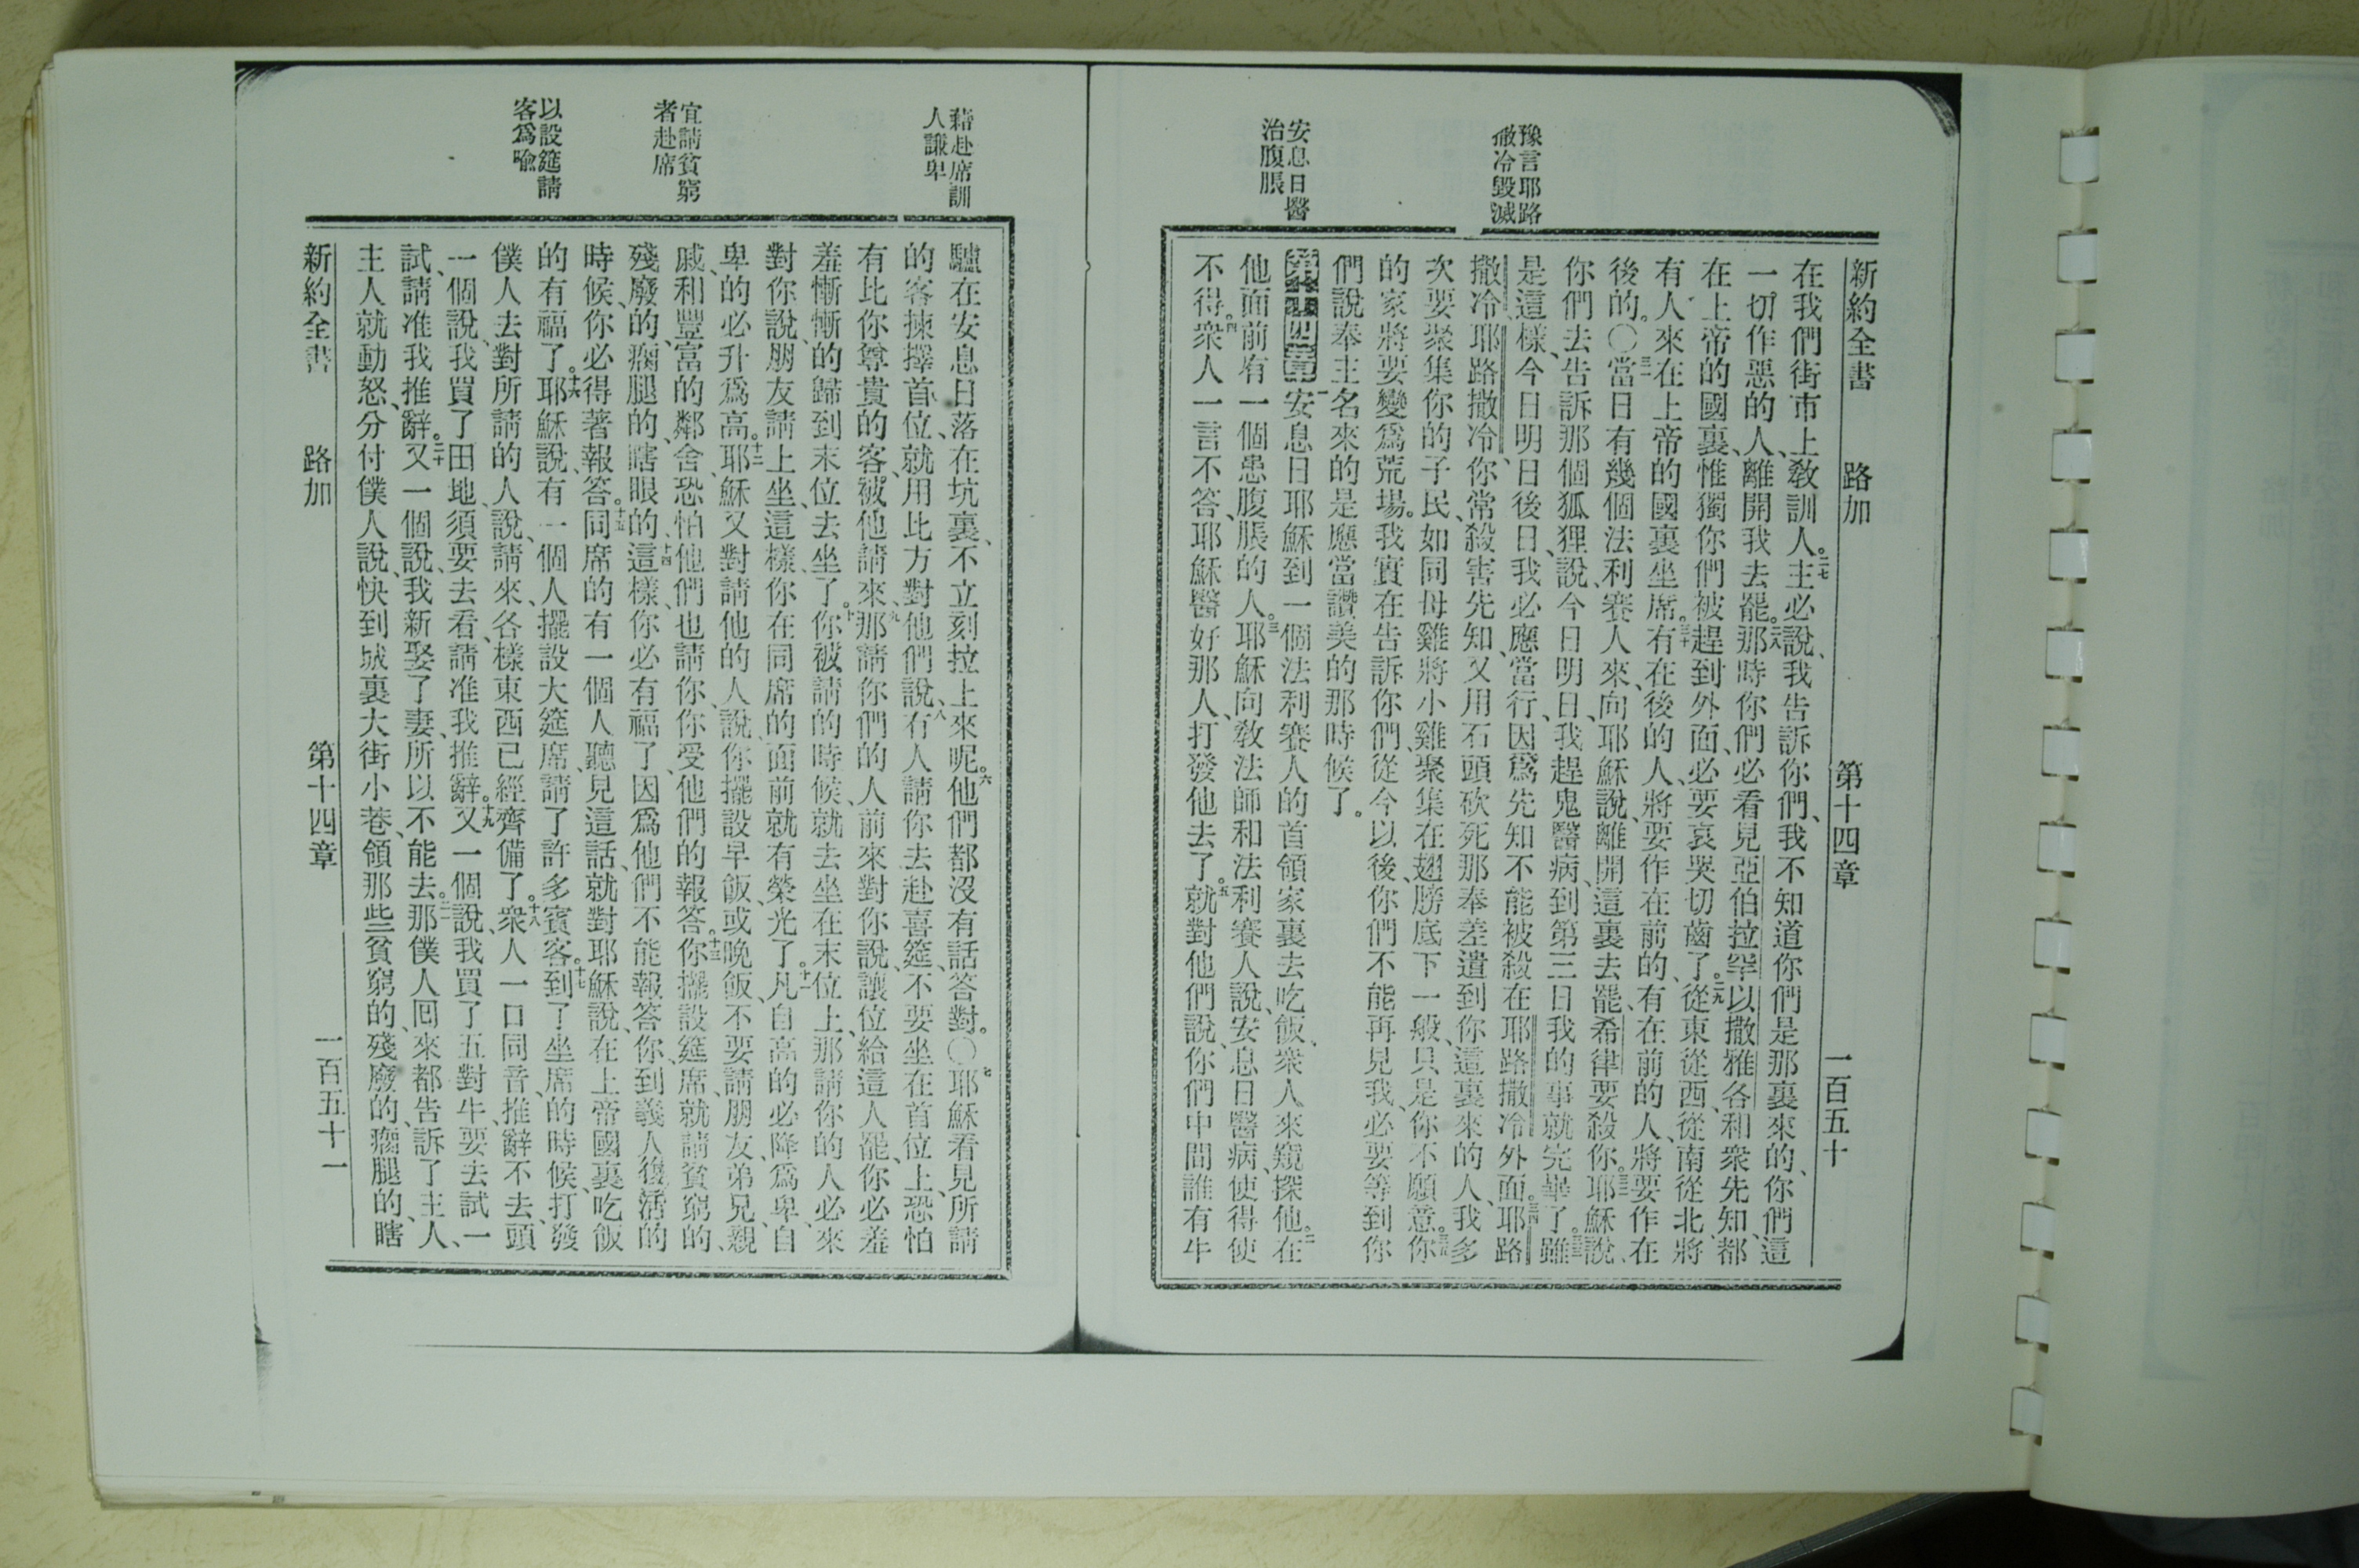 新約全書 路加 第十四章 一百五十
豫言耶路
撒冷毀滅
安息日醫
治腹脹
在我們街市上敎訓人。二七主必說、我告訴你們、我不知道你們是那裏來的、你們這
一切作惡的人、離開我去罷。二八那時你們必看見亞伯拉罕以撒雅各和衆先知、都
在上帝的國裏、惟獨你們被趕到外面、必要哀哭切齒了。二九從東從西、從南從北、將
有人來在上帝的國裏坐席。三十有在後的人、將要作在前的、有在前的人、將要作在
後的。〇三一當日有幾個法利賽人來、向耶穌說、離開這裏去罷、希律要殺你。三二耶穌說、
你們去告訴那個狐狸說、今日明日、我趕鬼醫病、到第三日我的事就完畢了。三三雖
是這樣、今日明日後日、我必應當行、因爲先知不能被殺在耶路撒冷外面。三四耶路
撒冷、耶路撒冷、你常殺害先知、又用石頭砍死那奉差遣到你這裏來的人、我多
次要聚集你的子民、如同母雞將小雞聚集在翅膀底下一般、只是你不願意。三五你
的家將要變爲荒場。我實在告訴你們、從今以後、你們不能再見我、必要等到你
們說奉主名來的是應當讚美的那時候了。
第十四章 一安息日耶穌到一個法利賽人的首領家裏去吃飯、衆人來窺探他。二在
他面前有一個患腹脹的人。三耶穌向敎法師和法利賽人說、安息日醫病、使得使
不得。四衆人一言不答、耶穌醫好那人、打發他去了。五就對他們說、你們中間誰有牛
藉赴席訓
人謙卑
宜請貧窮
者赴席
以設筵請
客爲喩
驢在安息日落在坑裏、不立刻拉上來呢。六他們都沒有話答對。〇七耶穌看見所請
的客揀擇首位、就用比方對他們說、八有人請你去赴喜筵、不要坐在首位上、恐怕
有比你尊貴的客、被他請來、九那請你們的人前來對你說、讓位給這人罷、你必羞
羞慚慚的歸到末位去坐了。十你被請的時候、就去坐在末位上、那請你的人必來
對你說、朋友請上坐、這樣、你在同席的面前就有榮光了。十一凡自高的必降爲卑、自
卑的必升爲高。十二耶穌又對請他的人說、你擺設早飯、或晚飯、不要請朋友、弟兄、親
戚、和豐富的鄰舍、恐怕他們也請你、你受他們的報答。十三你擺設筵席、就請貧窮的、
殘廢的、瘸腿的、瞎眼的、十四這樣、你必有福了、因爲他們不能報答你、到義人復活的
時候、你必得著報答。十五同席的有一個人聽見這話、就對耶穌說、在上帝國裏吃飯
的有福了。十六耶穌說、有一個人擺設大筵席、請了許多賓客。十七到了坐席的時候、打發
僕人去對所請的人說、請來、各樣東西已經齊備了。十八衆人一口同音、推辭不去、頭
一個說、我買了田地、須要去看、請准我推辭。十九又一個說、我買了五對牛、要去試一
試、請准我推辭。二十又一個說、我新娶了妻、所以不能去。二一那僕人囘來都告訴了主人、
主人就動怒、分付僕人說、快到城裏大街小巷、領那些貧窮的、殘廢的、瘸腿的、瞎
新約全書 路加 第十四章 一百五十一